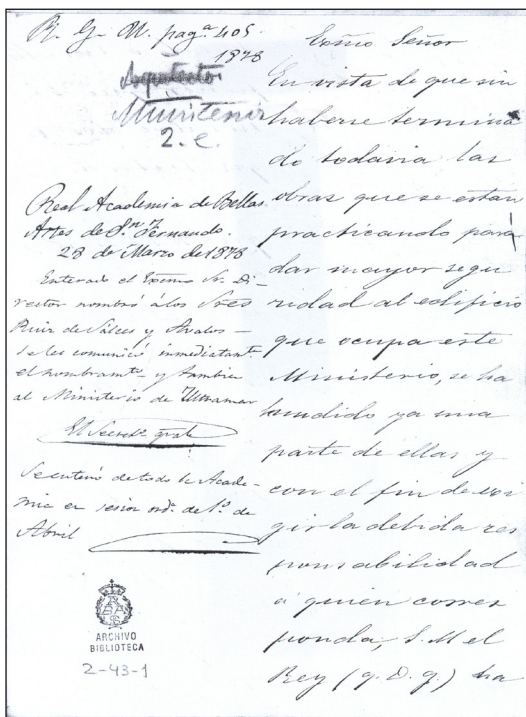 R. G. N. pagª 405.
1878
Arquitectos
Ministerio
2. C.
Real Academia de Bellas
Artes de Sⁿ Fernando.
28 de Marzo de 1878
Enterado el Exmo Sr. Di-
rector nombró á los Sres
Ruiz de Sálces y Avalos
se les comunicó inmediatamte
el nombramto y tambien
al Ministerio de Ultramar
El Secreto gral
Se enteró de todo la Acade-
mia en sesion ord. de 1º de
Abril
ARCHIVO
BIBLIOTECA
2-43-1
Exmo Señor
En vista de que sin
haberse termina
do todavia las
obras que se estan
practicando para
dar mayor segu
ridad al edificio
que ocupa este
Ministerio, se ha
hundido ya una
parte de ellas y
con el fin de exi
gir la debida res
ponsabilidad
á quien corres
ponda, S. M el
Rey (q. D. g.) ha